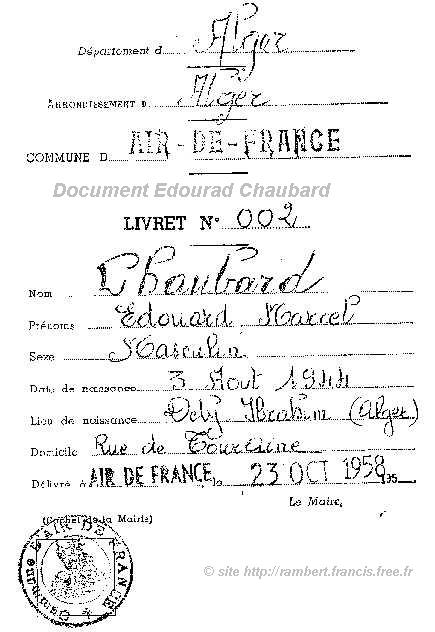 Département d Alger
ARRONDISSEMENT D Alger
COMMUNE D AIR-DE-FRANCE
Document Edourad Chaubard
LIVRET N° 002
Nom Chaubard
Prénoms Edouard Marcel
Sexe Masculin
Date de naissance 3 Aout 1944
Lieu de naissance Dely Ibrahim (Alger)
Domicile Rue de Touraine
Délivré à AIR DE FRANCE, le 23 OCT 1958 195
Le Maire,
(Cachet de la Mairie)
Commune D'AIR DE FRANCE
© site http://rambert.francis.free.fr